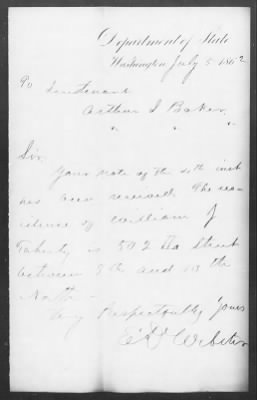 Department of State
Washington July 5 1862
To Lieutenant
Arthur I Baker
" " "
Sir.
Your note of the 4th inst
has been received The res-
idence of William J
is 592 Street
between 9th and 10 the
North
Very Respectfully Yours
E D Webster